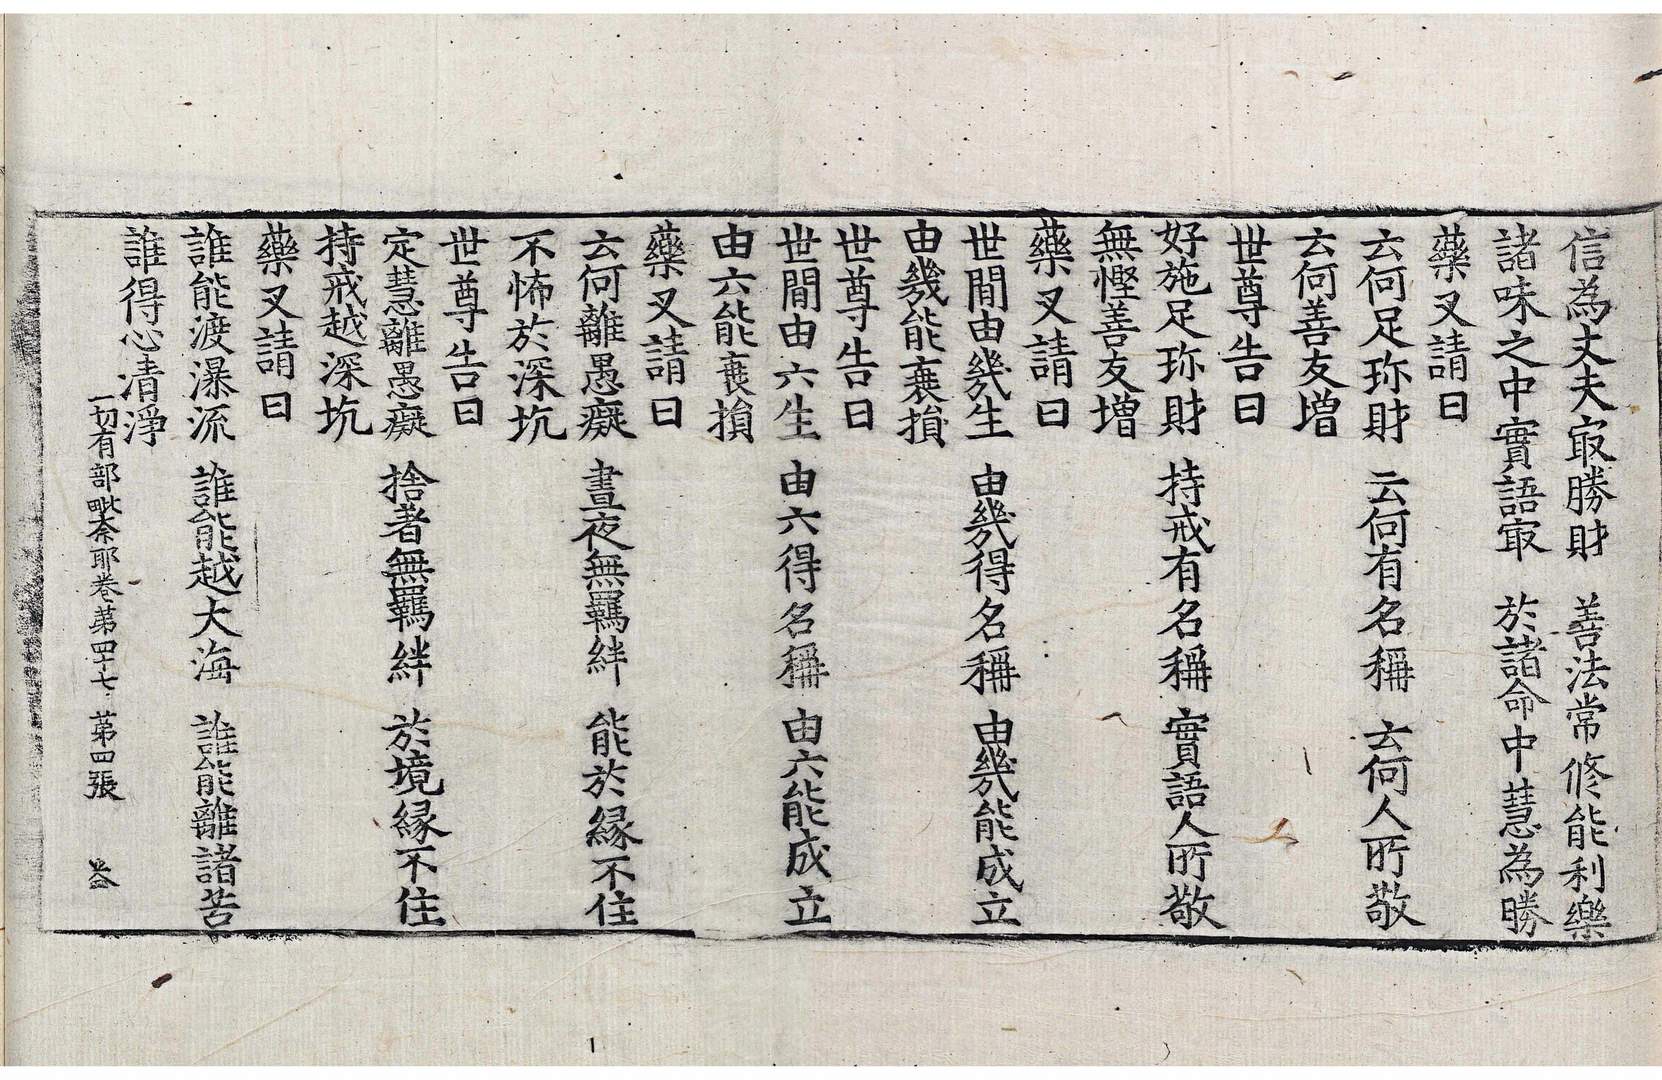 信為丈夫㝡勝財　善法常修能利樂
諸味之中實語㝡　於諸命中慧為勝
藥叉請曰
云何足珎財　云何有名稱　云何人所敬
云何善友増
世尊告曰
好施足珎財　持戒有名稱　實語人所敬
無慳善友増
藥叉請曰
世間由幾生　由幾得名稱　由幾能成立
由幾能衰損
世尊告曰
世間由六生　由六得名稱　由六能成立
由六能衰損
藥叉請曰
云何離愚癡　晝夜無羈絆　能於縁不住
不怖於深坑
世尊告曰
定慧離愚癡　捨者無羈絆　於境縁不住
持戒越深坑
藥叉請曰
誰能渡瀑流　誰能越大海　誰能離諸苦
誰得心清淨
一切有部毗奈耶卷第四十七　第四張